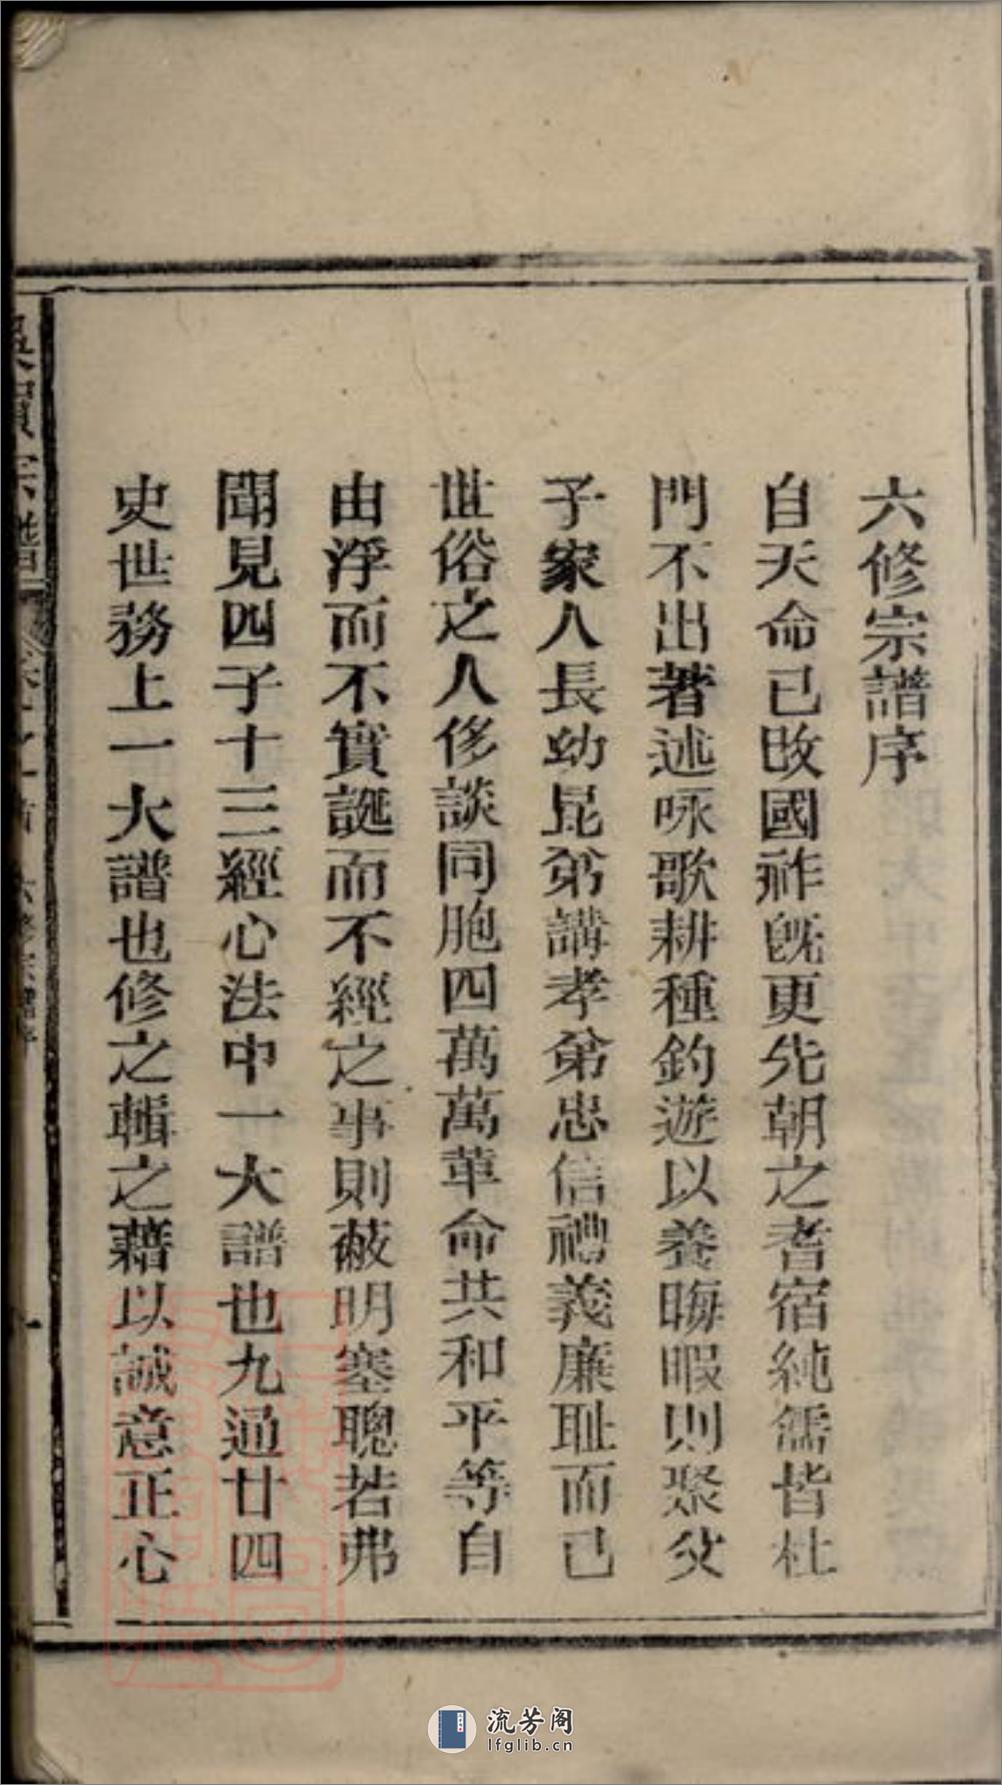 六修宗譜序
自天命已改國祚旣更先朝之耆宿純儒皆杜
門不出著述咏歌耕種釣遊以養晦暇則聚父
子家人長幼昆弟講孝弟忠信禮義廉耻而已
世俗之人侈談同胞四萬萬革命共和平等自
由浮而不實誕而不經之事則蔽明塞聰若弗
聞見四子十三經心法中一大譜也九通廿四
史世務上一大譜也修之輯之藉以誠意正心
宗譜
六修宗譜序
一
流芳阁
lfglib.cn